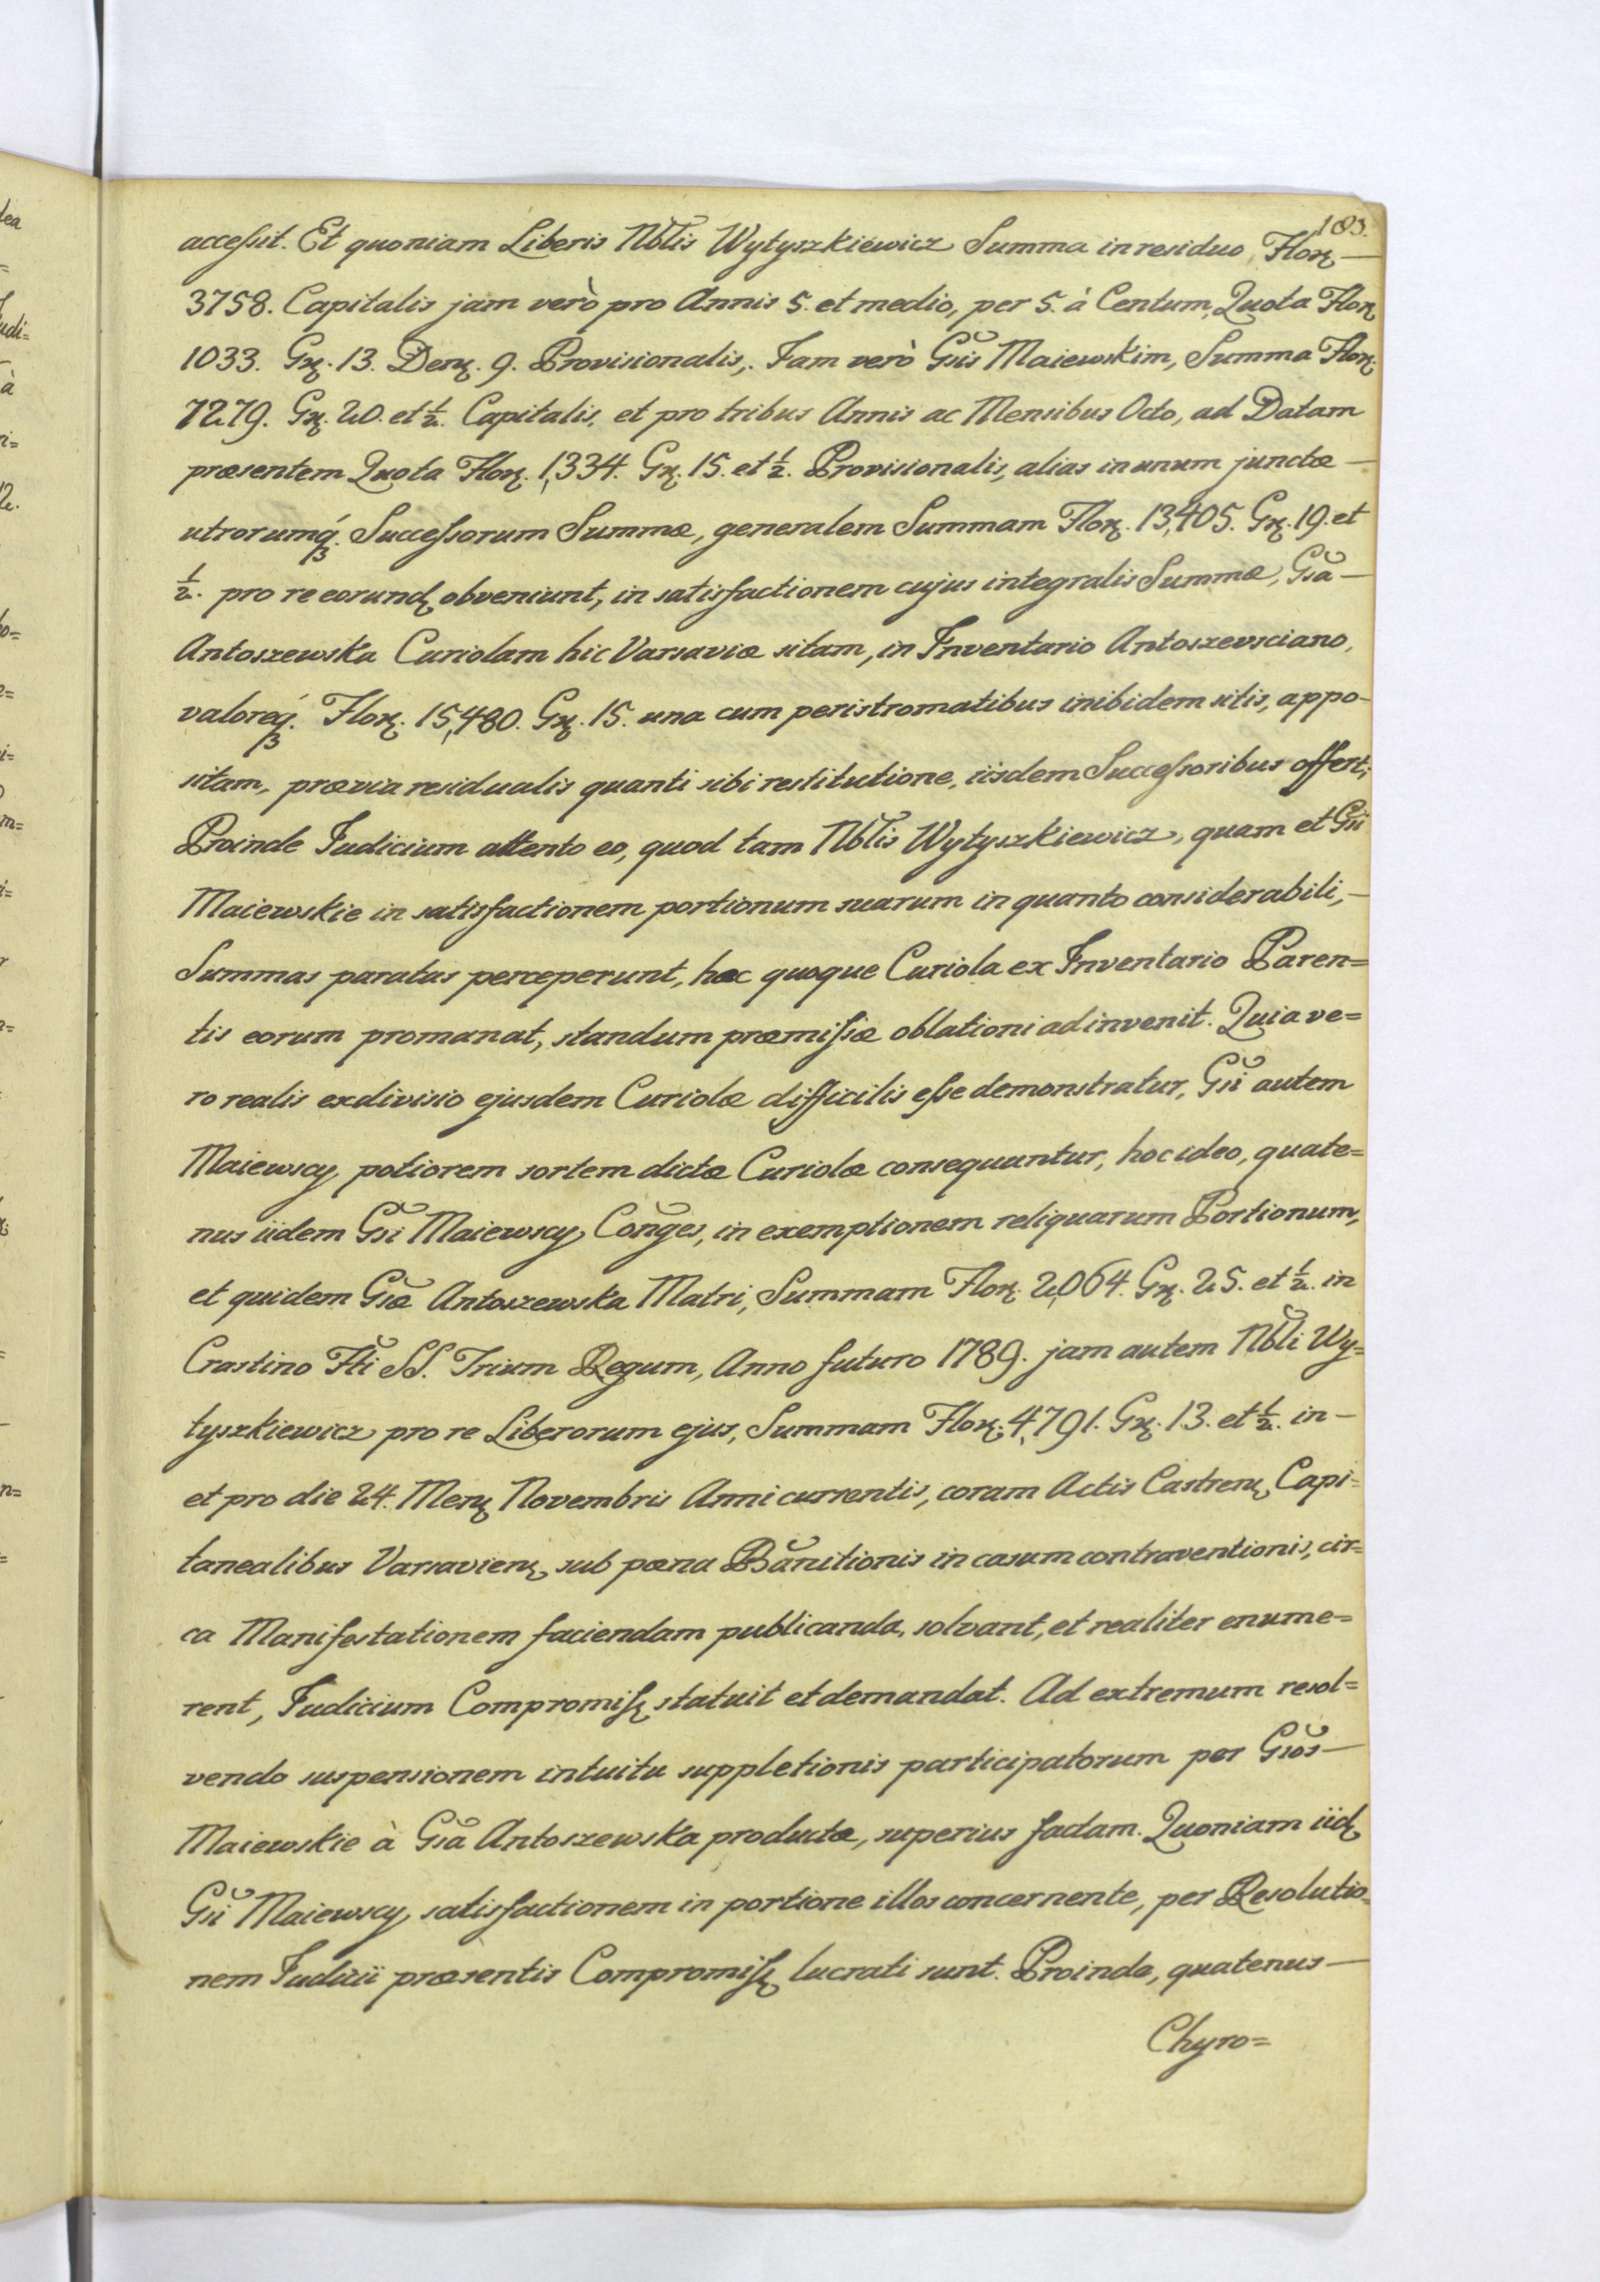 183.
accessit. Et quoniam Liberis Nbĭlis Wytyszkiewicz Summa in residuo, Flor. —
3758. Capitalis jam verò pro Annis 5. et medio, per 5. à Centum, Quota Flor.
1033. Gr. 13. Den. 9. Provisionalis,. Jam verò Gsĭs Maiewskim, Summa Flor.
7279. Gr. 20. et ½. Capitalis, et pro tribus Annis ac Mensibus Octo, ad Datam
præsentem Quota Flor. 1,334. Gr. 15. et ½. Provisionalis, alias in unum junctæ —
utrorumq́. Successorum Summæ, generalem Summam Flor. 13,405. Gr. 19. et
½. pro re eorund. obveniunt, in satisfactionem cujus integralis Summæ, Gsă —
Antoszewska Curiolam hic Varsaviæ sitam, in Inventario Antoszevsciano,
valoreq́. Flor. 15,480. Gr. 15. una cum peristromatibus inibidem sitis, appo-
sitam, prævia residualis quanti sibi restitutione, iisdem Successoribus offert;
Proinde Judicium attento eo, quod tam Nbĭlis Wytyszkiewicz, quam et Gsĭi
Maiewskie in satisfactionem portionum suarum in quanto considerabili, —
Summas paratas perceperunt, hæc quoque Curiola ex Inventario Paren=
tis eorum promanat, standum præmissæ oblationi adinvenit. Quia ve=
ro realis exdivisio ejusdem Curiolæ difficilis esse demonstratur, Gsĭi autem
Maiewscy potiorem sortem dictæ Curiolæ consequuntur, hoc ideo, quate=
nus iidem Gsĭi Maiewscy Coňges, in exemptionem reliquarum Portionum,
et quidem Gsæ̆ Antoszewska Matri, Summam Flor. 2,064. Gr. 25. et ½. in
Crastino Ftĭ SS. Trium Regum, Anno futuro 1789. jam autem Nbĭli Wy=
tyszkiewicz pro re Liberorum ejus, Summam Flor. 4,791. Gr. 13. et ½. in —
et pro die 24. Mens. Novembris Anni currentis, coram Actis Castren. Capi=
tanealibus Varsavien. sub pœna Băňitionis in casum contraventionis, cir=
ca Manifestationem faciendam publicanda, solvant, et realiter enume=
rent, Judicium Compromiss. statuit et demandat. Ad extremum resol=
vendo suspensionem intuitu suppletionis participatorum per Gsŏs —
Maiewskie à Gsă Antoszewska productæ, superius factam. Quoniam iid.
Gsĭi Maiewscy satisfactionem in portione illos concernente, per Resolutio=
nem Judicii præsentis Compromiss. lucrati sunt. Proinde, quatenus —
Chyro=